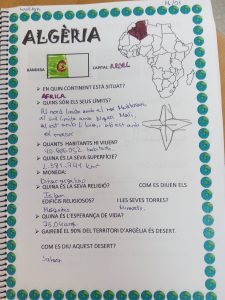 ALGÈRIA
BANDERA: CAPITAL: ALGEL
EN QUIN CONTINENT ESTÀ SITUAT?
ÀFRICA
QUINS SÓN ELS SEUS LÍMITS?
Al nord limita amb el mar Mediterrani,
al sud limita amb Niger, Mali,
al est amb Libia,
QUANTS HABITANTS HI VIUEN?
habitants
QUINA ÉS LA SEVA SUPERFÍCIE?
2.381.741 km²
MONEDA:
Dinar argelià
QUINA ÉS LA SEVA RELIGIÓ? COM ES DIUEN ELS
Islam
EDIFICIS RELIGIOSOS? I LES SEVES TORRES?
Mesquites Minarets
QUINA ÉS L'ESPERANÇA DE VIDA?
anys
GAIREBÉ EL 90% DEL TERRITORI D'ARGÈLIA ÉS DESERT.
COM ES DIU AQUEST DESERT?
Sahara